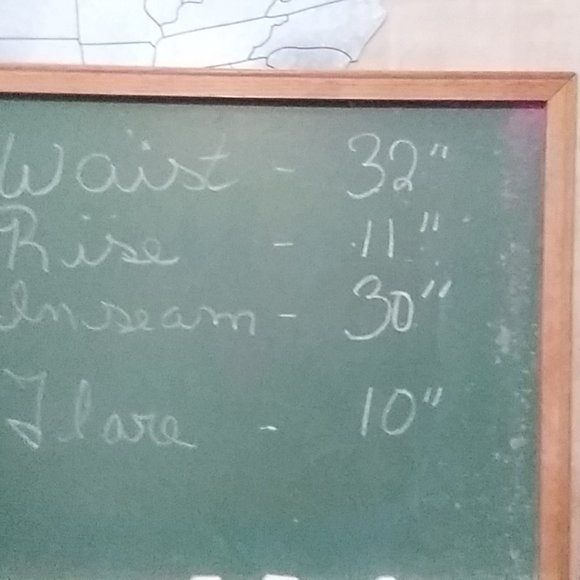 Waist - 32"
Rise - 11"
Inseam - 30"
Flare - 10"